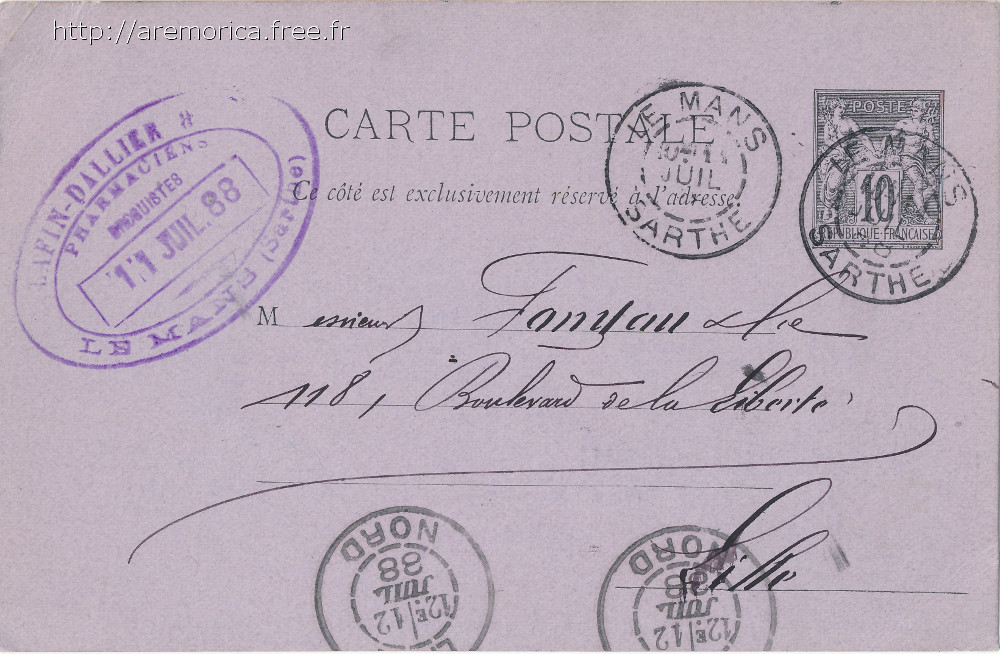 http://aremorica.free.fr
CARTE POSTALE
Ce côté est exclusivement réservé à l'adresse.
LAFIN-DALLIER &
PHARMACIENS
DROGUISTES
11 JUIL. 88
LE MANS (Sarthe)
LE MANS
JUIL
SARTHE
POSTE
10
REPUBLIQUE FRANÇAISE
LE MANS
SARTHE
Messieurs & Cie
à
118, Boulevard de la Liberté
Lille
NORD
88
JUIL
12E/12
NORD
88
JUIL
12E/12